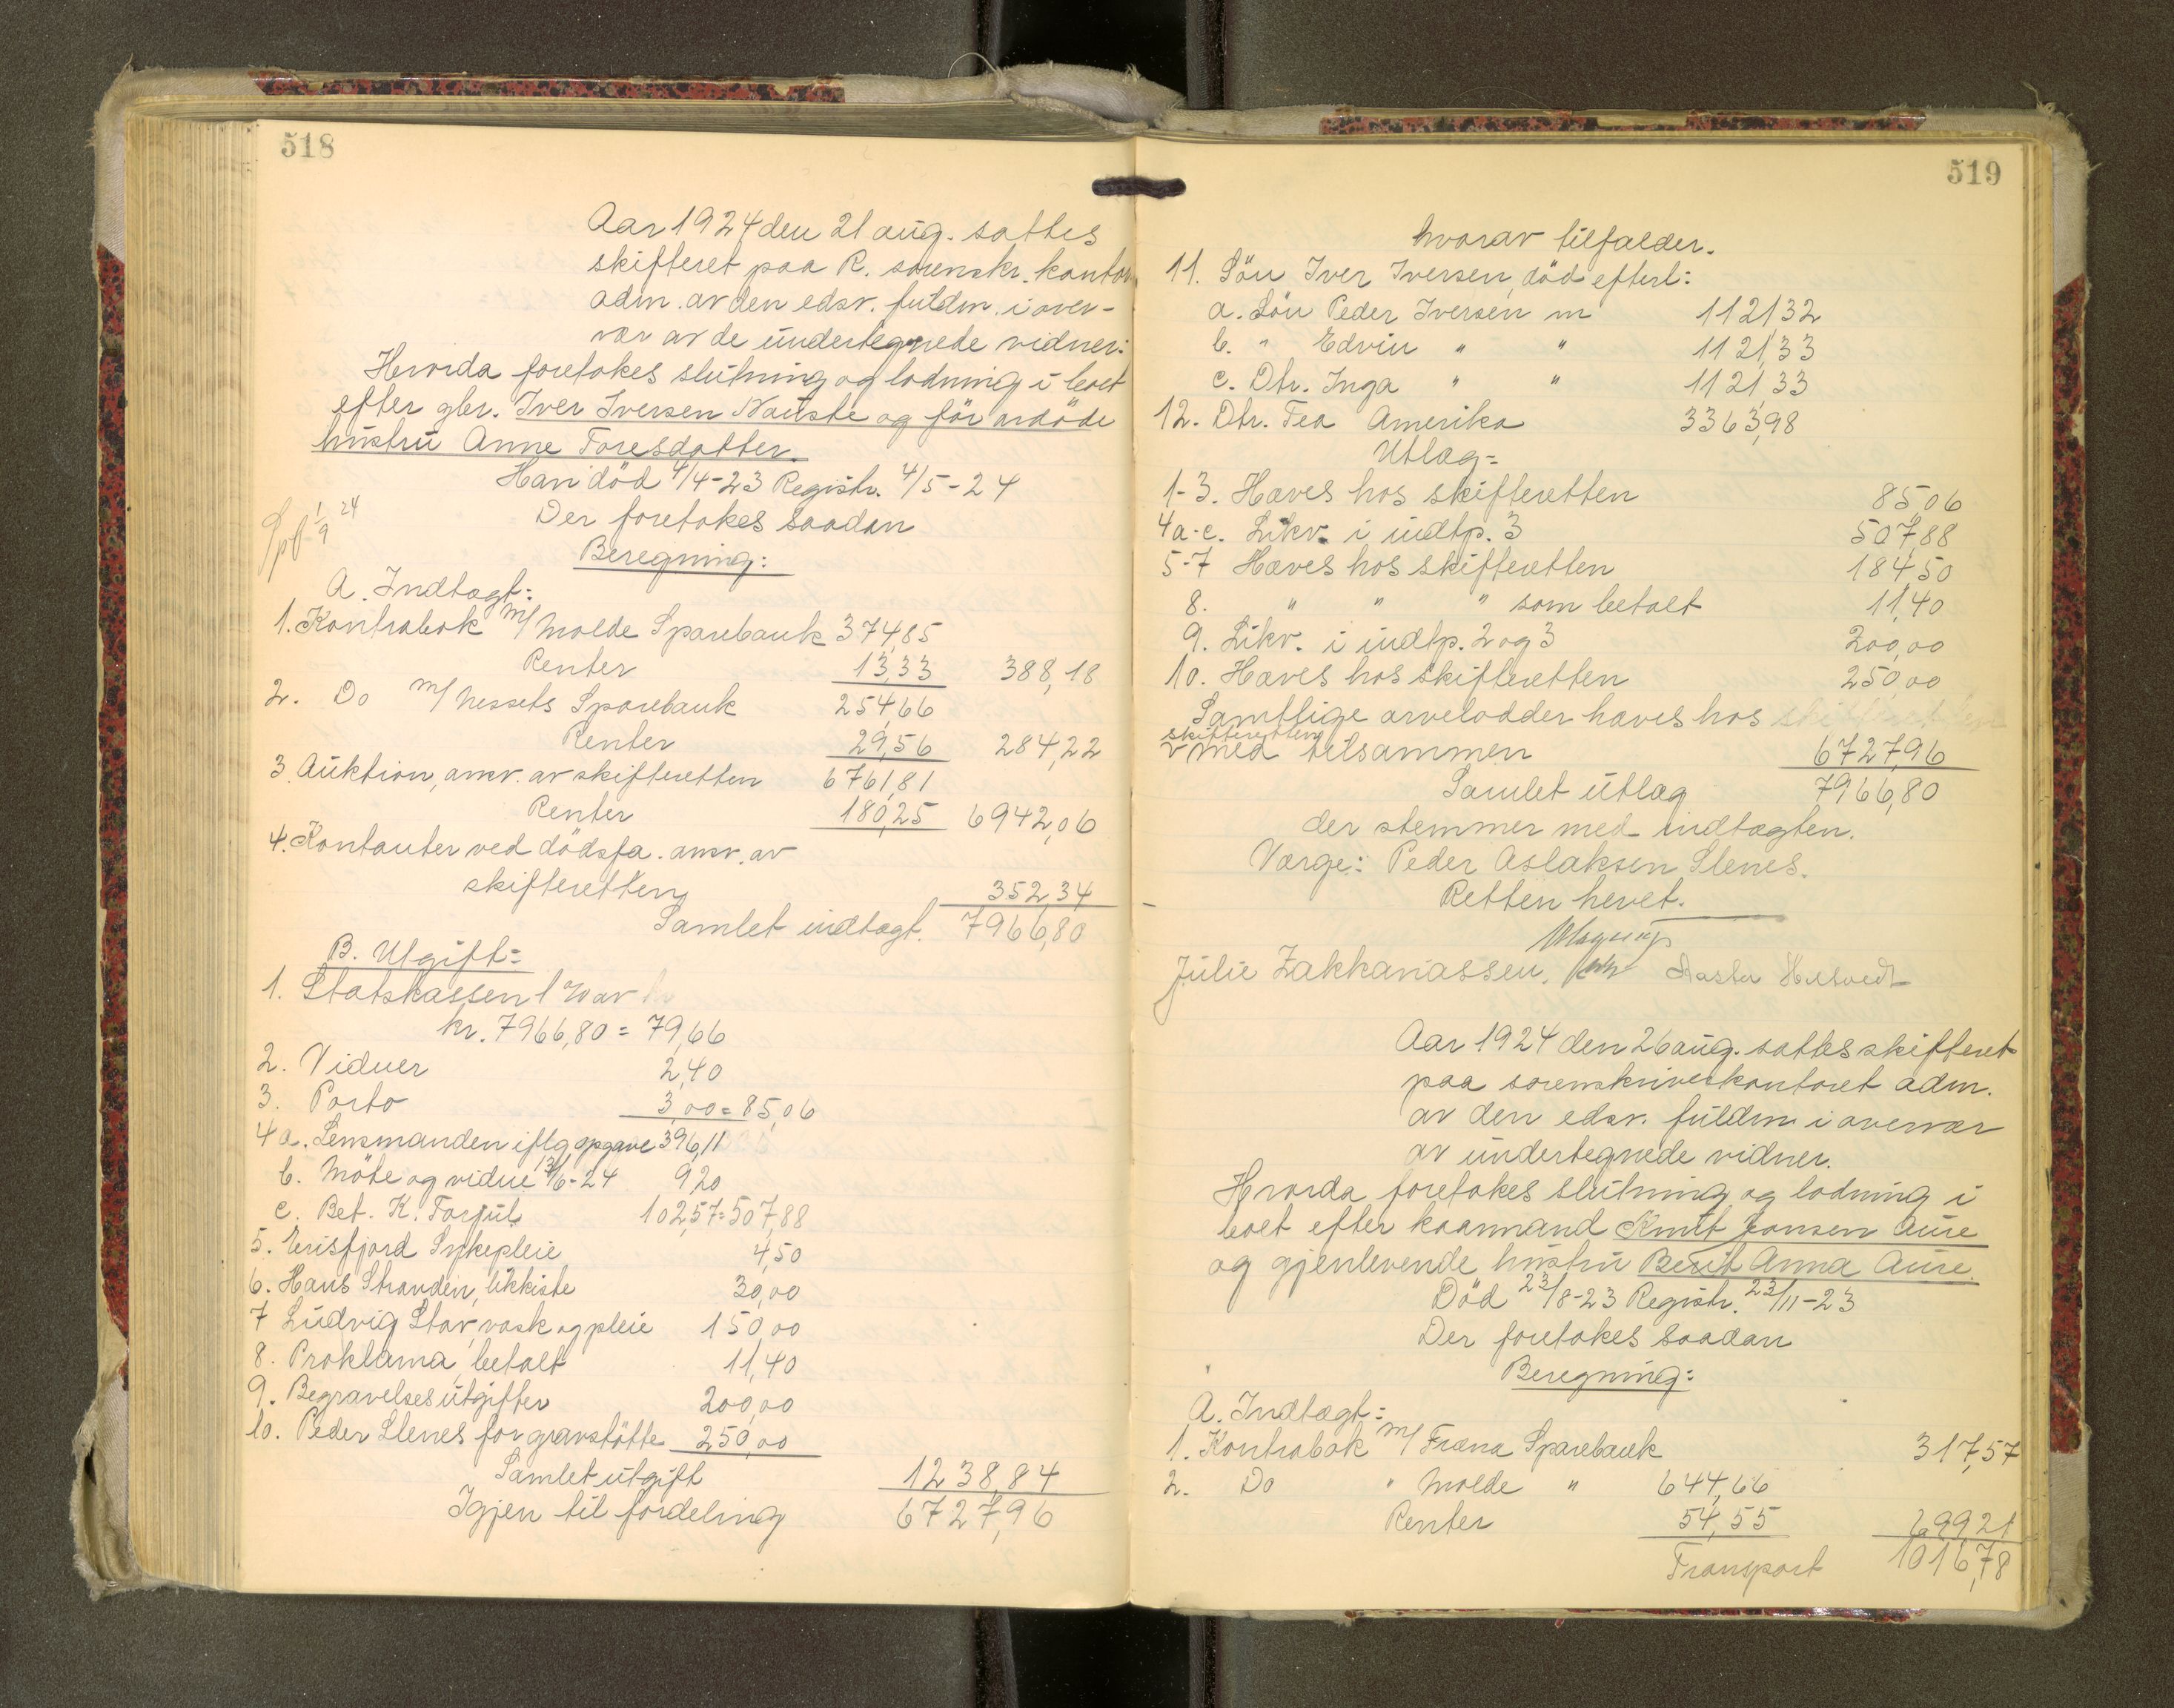 518
Aar 1924 den 21 aug. sattes
skifteret paa R. sorenskr. kontor
adm. av den edsv. fuldm. i over-
vær av de undertegnede vidner:
Hvorda foretokes slutning og lodning i boet
efter gbr. Iver Iversen Nauste og før avdøde
hustru Anne Toresdatter.
Han död 4/4-23 Registr. 4/5-24
Der foretokes saadan
1/9 24
Beregning:
A. Indtægt:
1. Kontrabok m/ Molde Sparebank 374,85
Renter 13,33 388,18
2. Do m/ Nessets Sparebank 254,66
Renter 29,56 284,22
3. Auktion, anv. av skifteretten 6761,81
Renter 180,25 6942,06
4. Kontanter ved dödsfa. anv. av
skifteretten 352,34
Samlet indtægt. 7966,80
B. Utgift:
1. Statskassen 1 % av
kr. 7966,80 = 79,66
2. Vidner 2,40
3. Porto 3,00 = 85,06
4a. Lensmanden iflg. opgave 396,11
b. Möte og vidne 13/6-24 9,20
c. Bet. K. Torjul 102,57 = 507,88
5. Erisfjord Sykepleie 4,50
6. Hans Stranden, likkiste 30,00
7 Ludvig Stor, vask og pleie 150,00
8. Proklama, betalt 11,40
9. Begravelsesutgifter 200,00
10. Peder Slenes for gravstötte 250,00
Samlet utgift 1238,84
Igjen til fordeling 6727,96
519
hvorav tilfalder.
11. Sön Iver Iversen, död efterl:
a. Sön Peder Iversen m 1121,32
b. " Edvin " " 1121,33
c. Dtr. Inga " " 1121,33
12. Dtr. Fea Amerika 3363,98
Utlæg:
1-3. Hæves hos skifteretten 85,06
4a-c. Likv. i indtp. 3 507,88
5-7 Hæves hos skifteretten 184,50
8. " " " som betalt 11,40
9. Likv. i indtp. 2 og 3 200,00
10. Hæves hos skifteretten 250,00
Samtlige arvelodder hæves hos skifteretten
skifteretten
v med tilsammen 6727,96
Samlet utlæg 7966,80
der stemmer med indtægten.
Værge: Peder Aslaksen Slenes.
Retten hevet.
Julie Zakkariassen.
Aar 1924 den 26 aug. sattes skifteret
paa sorenskriverkontoret adm.
av den edsv. fuldm. i overvær
av undertegnede vidner.
Hvorda foretokes slutning og lodning i
boet efter kaarmand Knut Jonsen Aure
og gjenlevende hustru Berit Anna Aure.
Död 23/8-23 Registr. 23/11-23
Der foretokes saadan
Beregning:
A. Indtægt:
1. Kontrabok m/ Fræna Sparebank 317,57
2. Do " Molde " 644,66
Renter 54,55 699,21
Transport 1016,78